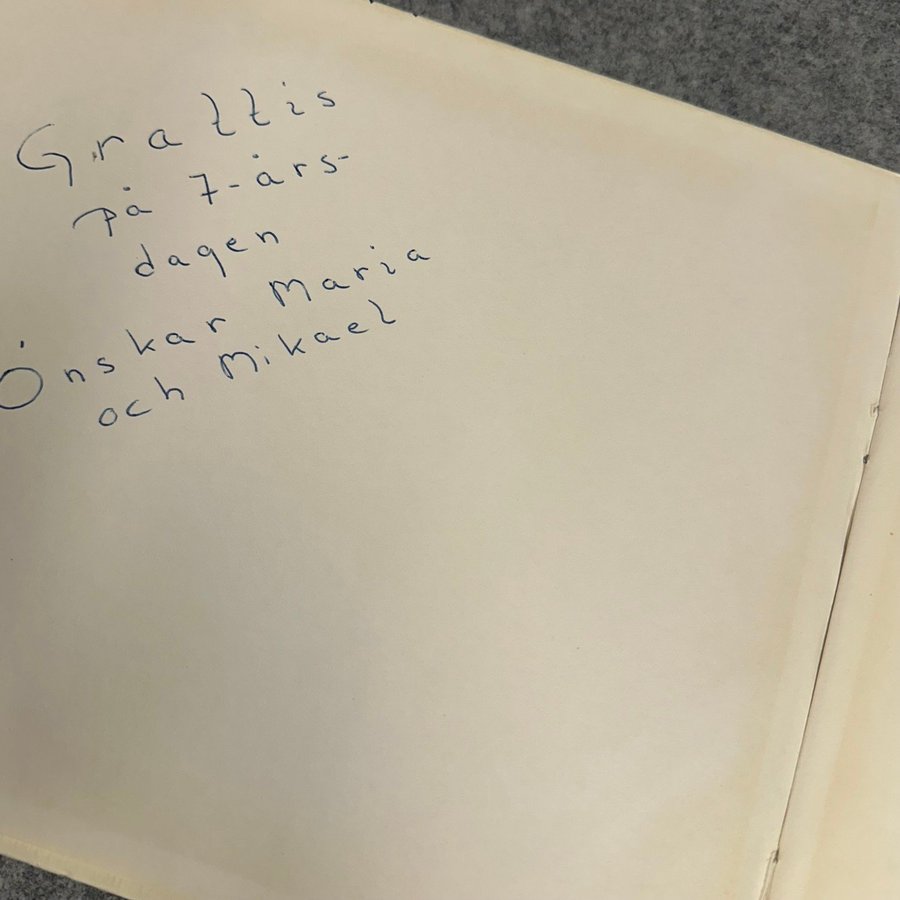 Grattis
på 7-års-
dagen
Önskar Maria
och Mikael